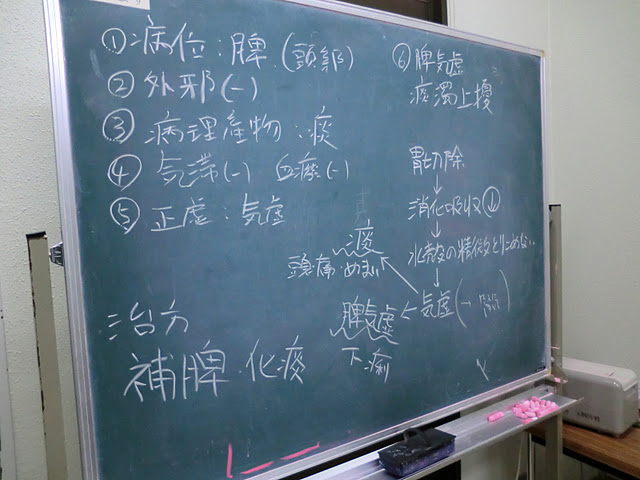 ①病位:脾(頭部)
②外邪(-)
③病理産物:痰
④気滞(-) 血瘀(-)
⑤正虚:気虚
治方
補脾・化痰
⑥脾気虚
痰濁上擾
胃切除
↓
消化吸収↓
↓
水穀の精微とりこめない
↓
気虚
痰
頭痛・めまい
脾気虚←
下痢